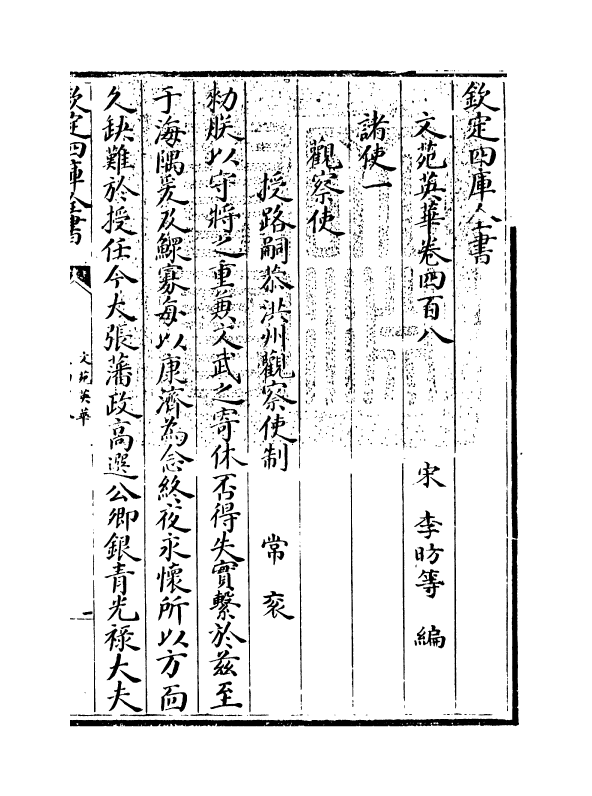 欽定四庫全書
文苑英華卷四百八
宋 李昉等 編
諸使一
觀察使
授路嗣恭洪州觀察使制 常衮
勑朕以守將之重兼文武之寄休否得失實繫於兹至
于海隅爰及鰥寡每以康濟為念終夜永懷所以方面
久缺難於授任今大張藩政高選公卿銀青光禄大夫
欽定四庫全書
文苑英華